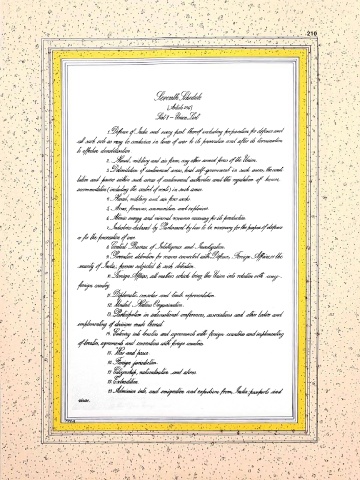 210
Seventh Schedule
(Article 246)
List I — Union List
1. Defence of India and every part thereof including preparation for defence and
all such acts as may be conducive in times of war to its prosecution and after its termination
to effective demobilisation.
2. Naval, military and air forces; any other armed forces of the Union.
3. Delimitation of cantonment areas, local self-government in such areas, the consti-
tution and powers within such areas of cantonment authorities and the regulation of house
accommodation (including the control of rents) in such areas.
4. Naval, military and air force works.
5. Arms, firearms, ammunition and explosives.
6. Atomic energy and mineral resources necessary for its production.
7. Industries declared by Parliament by law to be necessary for the purpose of defence
or for the prosecution of war.
8. Central Bureau of Intelligence and Investigation.
9. Preventive detention for reasons connected with Defence, Foreign Affairs, or the
security of India; persons subjected to such detention.
10. Foreign Affairs; all matters which bring the Union into relation with any
foreign country.
11. Diplomatic, consular and trade representation.
12. United Nations Organisation.
13. Participation in international conferences, associations and other bodies and
implementing of decisions made thereat.
14. Entering into treaties and agreements with foreign countries and implementing
of treaties, agreements and conventions with foreign countries.
15. War and peace.
16. Foreign jurisdiction.
17. Citizenship, naturalisation and aliens.
18. Extradition.
19. Admission into, and emigration and expulsion from, India; passports and
visas.